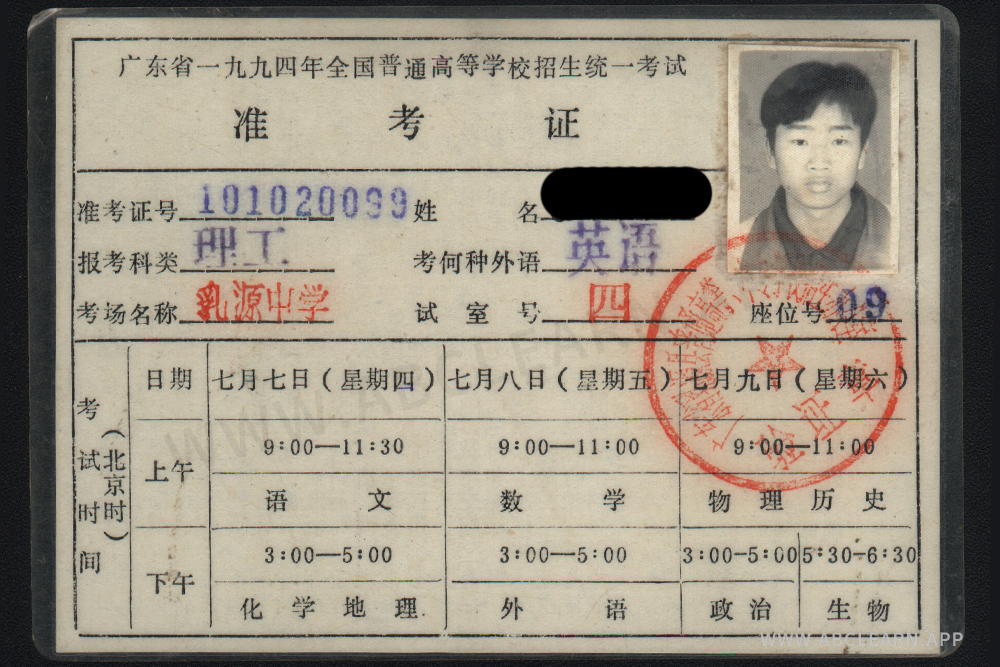 广东省一九九四年全国普通高等学校招生统一考试
准考证
准考证号 101020099 姓名
报考科类 理工 考何种外语 英语
考场名称 乳源中学 试室号 四 座位号 09
考试时间(北京时) 日期 七月七日(星期四) 七月八日(星期五) 七月九日(星期六)
上午 9:00—11:30 9:00—11:00 9:00—11:00
语文 数学 物理 历史
下午 3:00—5:00 3:00—5:00 3:00-5:00 5:30-6:30
化学 地理 外语 政治 生物
验证章
WWW.ABCLEARN
WWW.ABCLEARN.APP